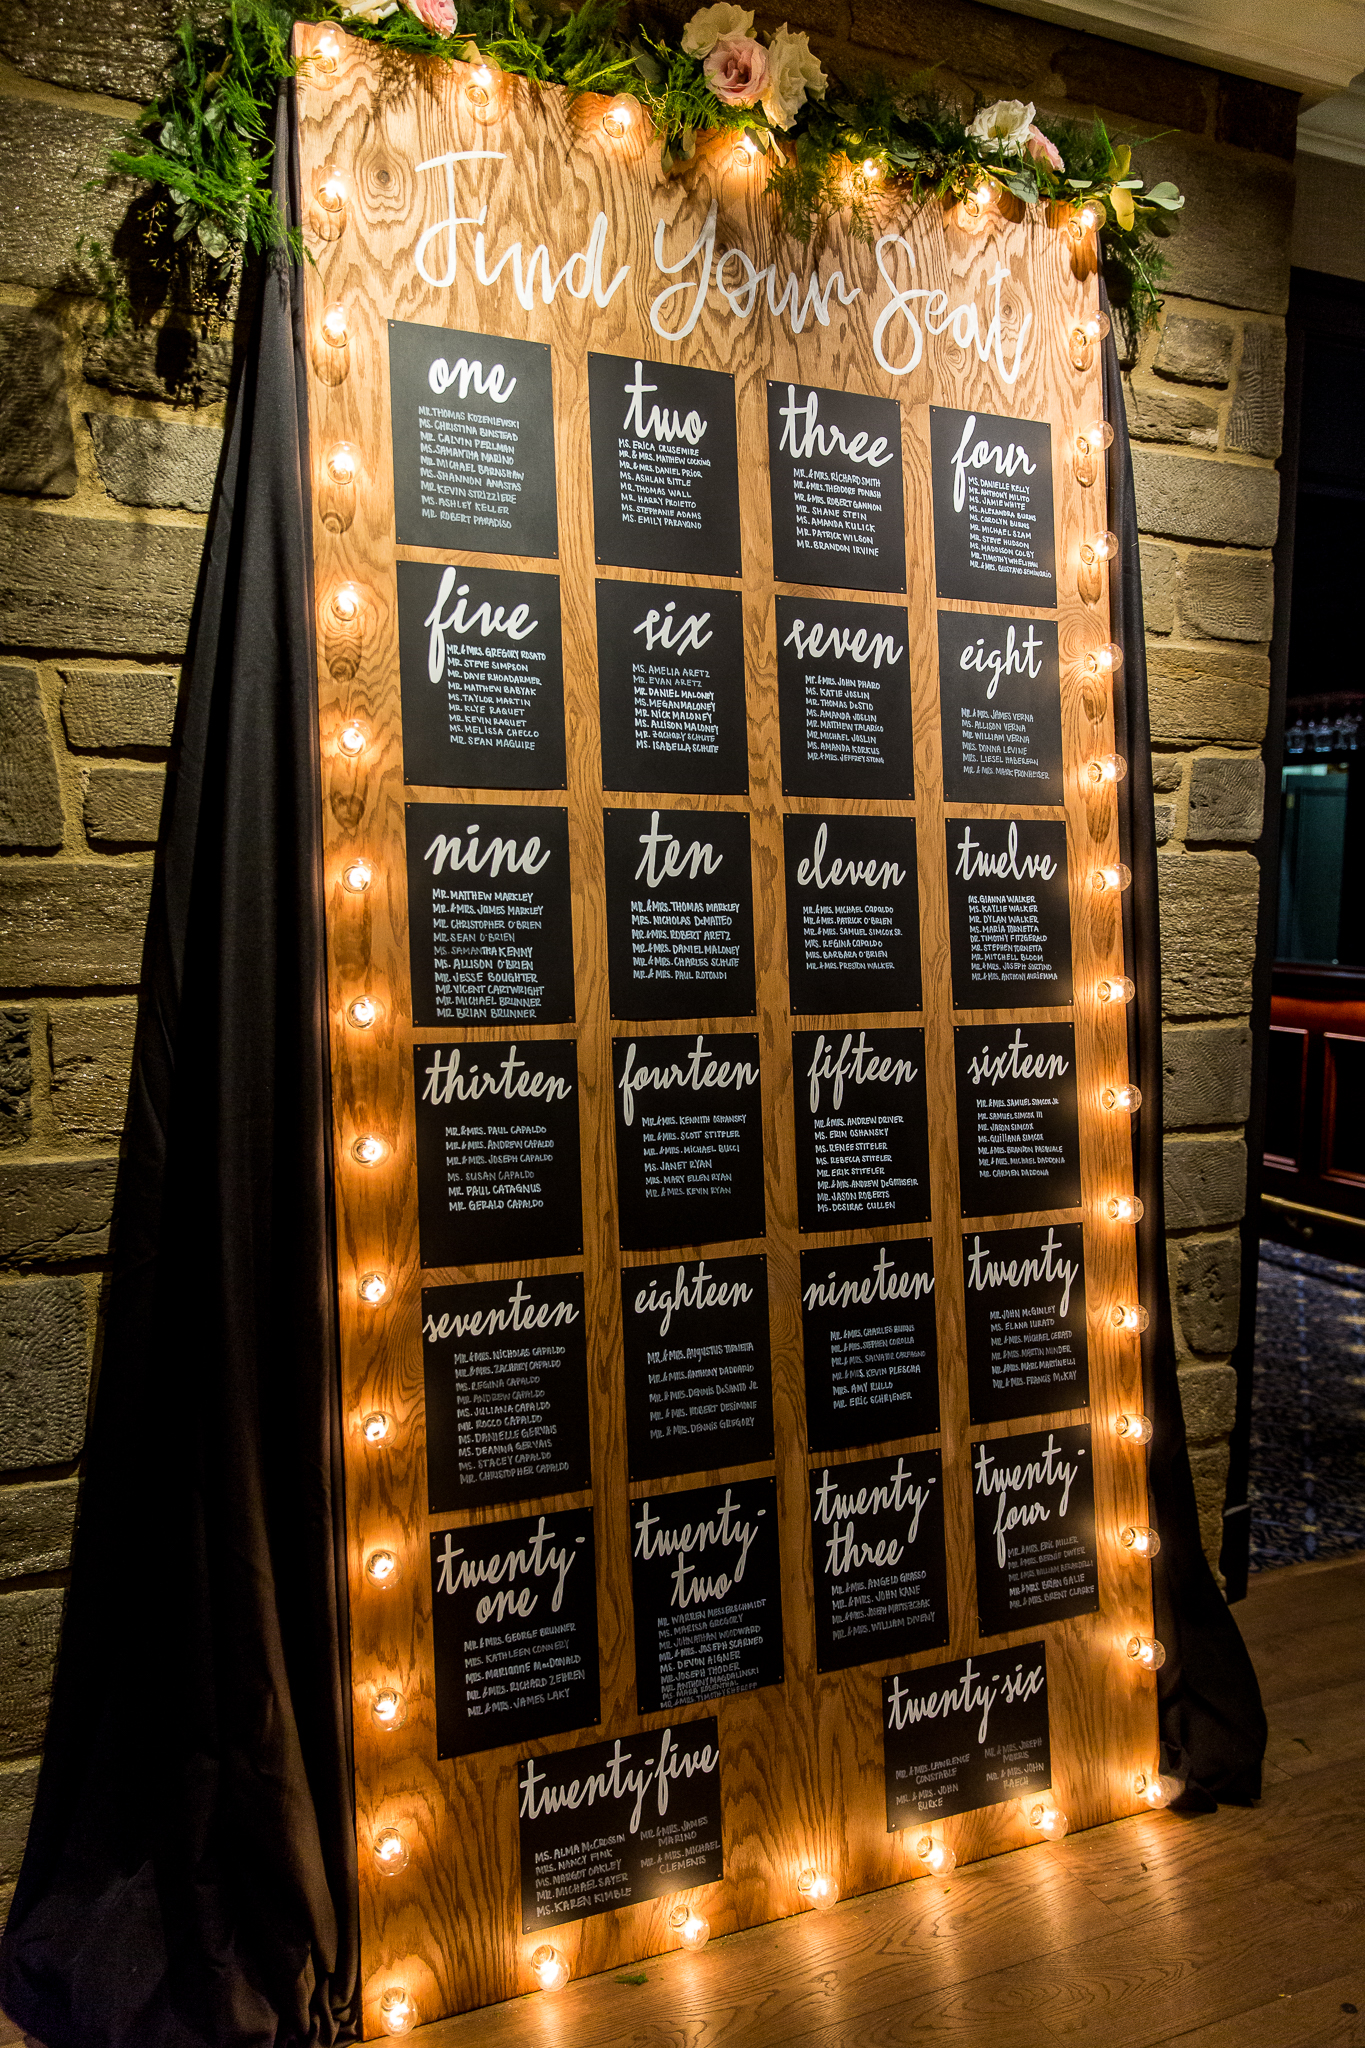 Find Your Seat
one
MR. THOMAS KOZENIEWSKI
MS. CHRISTINA BINSTEAD
MR. CALVIN PERLMAN
MS. SAMANTHA MARINO
MR. MICHAEL BARNSHAW
MS. SHANNON ANASTAS
MR. KEVIN STRIZZIERE
MS. ASHLEY KELLER
MR. ROBERT PARADISO
two
MS. ERICA CRUSEMIRE
MR. & MRS. MATTHEW COCKING
MR. & MRS. DANIEL PRIOR
MS. ASHLAN BITTLE
MR. THOMAS WALL
MR. HARRY PROIETTO
MS. STEPHANIE ADAMS
MS. EMILY PARAVONO
three
MR. & MRS. RICHARD SMITH
MR. & MRS. THEODORE PONASH
MR. & MRS. ROBERT GANNON
MR. SHANE STEIN
MS. AMANDA KULICK
MR. PATRICK WILSON
MR. BRANDON IRVINE
four
MS. DANIELLE KELLY
MR. ANTHONY MILITO
MS. JAMIE WHITE
MS. ALEXANDRA BURNS
MS. CAROLYN BURNS
MR. MICHAEL SZAM
MR. STEVE HUDSON
MS. MADDISON COLBY
MR. TIMOTHY WHELIHAN
MR. & MRS. GUSTAVO SEMINARIO
five
MR. & MRS. GREGORY ROSATO
MR. STEVE SIMPSON
MR. DAVE RHOADARMER
MR. MATTHEW BABYAK
MS. TAYLOR MARTIN
MR. KLYE RAGUET
MR. KEVIN RAGUET
MS. MELISSA CHECCO
MR. SEAN MAGUIRE
six
MS. AMELIA ARETZ
MR. EVAN ARETZ
MR. DANIEL MALONEY
MS. MEGAN MALONEY
MR. NICK MALONEY
MS. ALLISON MALONEY
MR. ZACHARY SCHUTE
MS. ISABELLA SCHUTE
seven
MR. & MRS. JOHN PHARO
MS. KATIE JOSLIN
MR. THOMAS DESTIO
MS. AMANDA JOSLIN
MR. MATTHEW TALARICO
MR. MICHAEL JOSLIN
MS. AMANDA KORKUS
MR. & MRS. JEFFREY STONG
eight
MR. & MRS. JAMES VERNA
MS. ALLISON VERNA
MR. WILLIAM VERNA
MRS. DONNA LEVINE
MRS. LIESEL HABERERN
MR. & MRS. MARK FRONHEISER
nine
MR. MATTHEW MARKLEY
MR. & MRS. JAMES MARKLEY
MR. CHRISTOPHER O'BRIEN
MR. SEAN O'BRIEN
MS. SAMANTHA KENNY
MS. ALLISON O'BRIEN
MR. JESSE BOUGHTER
MR. VICENT CARTWRIGHT
MR. MICHAEL BRUNNER
MR. BRIAN BRUNNER
ten
MR. & MRS. THOMAS MARKLEY
MRS. NICHOLAS DEMATTEO
MR. & MRS. ROBERT ARETZ
MR. & MRS. DANIEL MALONEY
MR. & MRS. CHARLES SCHUTE
MR. & MRS. PAUL ROTONDI
eleven
MR. & MRS. MICHAEL CAPALDO
MR. & MRS. PATRICK O'BRIEN
MR. & MRS. SAMUEL SIMCOX SR.
MRS. REGINA CAPALDO
MRS. BARBARA O'BRIEN
MR. & MRS. PRESTON WALKER
twelve
MS. GIANNA WALKER
MS. KAYLIE WALKER
MR. DYLAN WALKER
MS. MARIA TORNETTA
DR. TIMOTHY FITZGERALD
MR. STEPHEN TORNETTA
MR. MITCHELL BLOOM
MR. & MRS. JOSEPH SORTINO
MR. & MRS. ANTHONY AURIEMMA
thirteen
MR. & MRS. PAUL CAPALDO
MR. & MRS. ANDREW CAPALDO
MR. & MRS. JOSEPH CAPALDO
MS. SUSAN CAPALDO
MR. PAUL CATAGNUS
MR. GERALD CAPALDO
fourteen
MR. & MRS. KENNITH OSHANSKY
MR. & MRS. SCOTT STITELER
MR. & MRS. MICHAEL BUCCI
MS. JANET RYAN
MRS. MARY ELLEN RYAN
MR. & MRS. KEVIN RYAN
fifteen
MR. & MRS. ANDREW DRIVER
MS. ERIN OSHANSKY
MS. RENEE STITELER
MS. REBECCA STITELER
MR. ERIK STITELER
MR. & MRS. ANDREW DEGONSEIR
MR. JASON ROBERTS
MS. DESIRAE CULLEN
sixteen
MR. & MRS. SAMUEL SIMCOX JR.
MR. SAMUEL SIMCOX III
MR. JASON SIMCOX
MS. GUILIANA SIMCOX
MR. & MRS. BRANDON PASQUALE
MR. & MRS. MICHAEL DADDONA
MR. CARMEN DADDONA
seventeen
MR. & MRS. NICHOLAS CAPALDO
MR. & MRS. ZACHARY CAPALDO
MS. REGINA CAPALDO
MR. ANDREW CAPALDO
MS. JULIANA CAPALDO
MR. ROCCO CAPALDO
MS. DANIELLE GERVAIS
MS. DEANNA GERVAIS
MS. STACEY CAPALDO
MR. CHRISTOPHER CAPALDO
eighteen
MR. & MRS. AUGUSTUS TORNETTA
MR. & MRS. ANTHONY DADDARIO
MR. & MRS. DENNIS DESANTO JR.
MR. & MRS. ROBERT DESIMONE
MR. & MRS. DENNIS GREGORY
nineteen
MR. & MRS. CHARLES BURNS
MR. & MRS. STEPHEN COROLLA
MR. & MRS. SALVATORE CARFAGNO
MR. & MRS. KEVIN PLESCHA
MRS. AMY RULLO
MR. ERIC SCHRIENER
twenty
MR. JOHN MCGINLEY
MS. ELANA IURATO
MR. & MRS. MICHAEL CERATO
MR. & MRS. MARTIN MINDER
MR. & MRS. MARC MARTINELLI
MR. & MRS. FRANCIS MCKAY
twenty-
one
MR. & MRS. GEORGE BRUNNER
MRS. KATHLEEN CONNERY
MRS. MARIANNE MACDONALD
MR. & MRS. RICHARD ZEHREN
MR. & MRS. JAMES LAKY
twenty-
two
MR. WARREN MESSERSCHMIDT
MS. MARISSA GREGORY
MR. JOHNATHAN WOODWARD
MR. & MRS. JOSEPH SCARNEO
MS. DEVON AIGNER
MR. JOSEPH THODER
MR. ANTHONY MAGDALINSKI
MS. MARA ROSENTHAL
MR. & MRS. TIMOTHY
twenty-
three
MR. & MRS. ANGELO GRASSO
MR. & MRS. JOHN KANE
MR. & MRS. JOSEPH MATYSZCZAK
MR. & MRS. WILLIAM DIVENY
twenty-
four
MR. & MRS. ERIC MILLER
MR. & MRS. BERNIE DWYER
MR. & MRS. WILLIAM BERARDELLI
MR. & MRS. BRIAN GALIE
MR. & MRS. BRENT CLARKE
twenty-five
MS. ALMA MCCROSSIN
MRS. NANCY FINK
MS. MARGOT OAKLEY
MR. MICHAEL SAYER
MS. KAREN KIMBLE
MR. & MRS. JAMES
MARINO
MR. & MRS. MICHAEL
CLEMENTS
twenty-six
MR. & MRS. LAWRENCE
CONSTABLE
MR. & MRS. JOHN
BURKE
MR. & MRS. JOSEPH
MORRIS
MR. & MRS. JOHN
RAECH